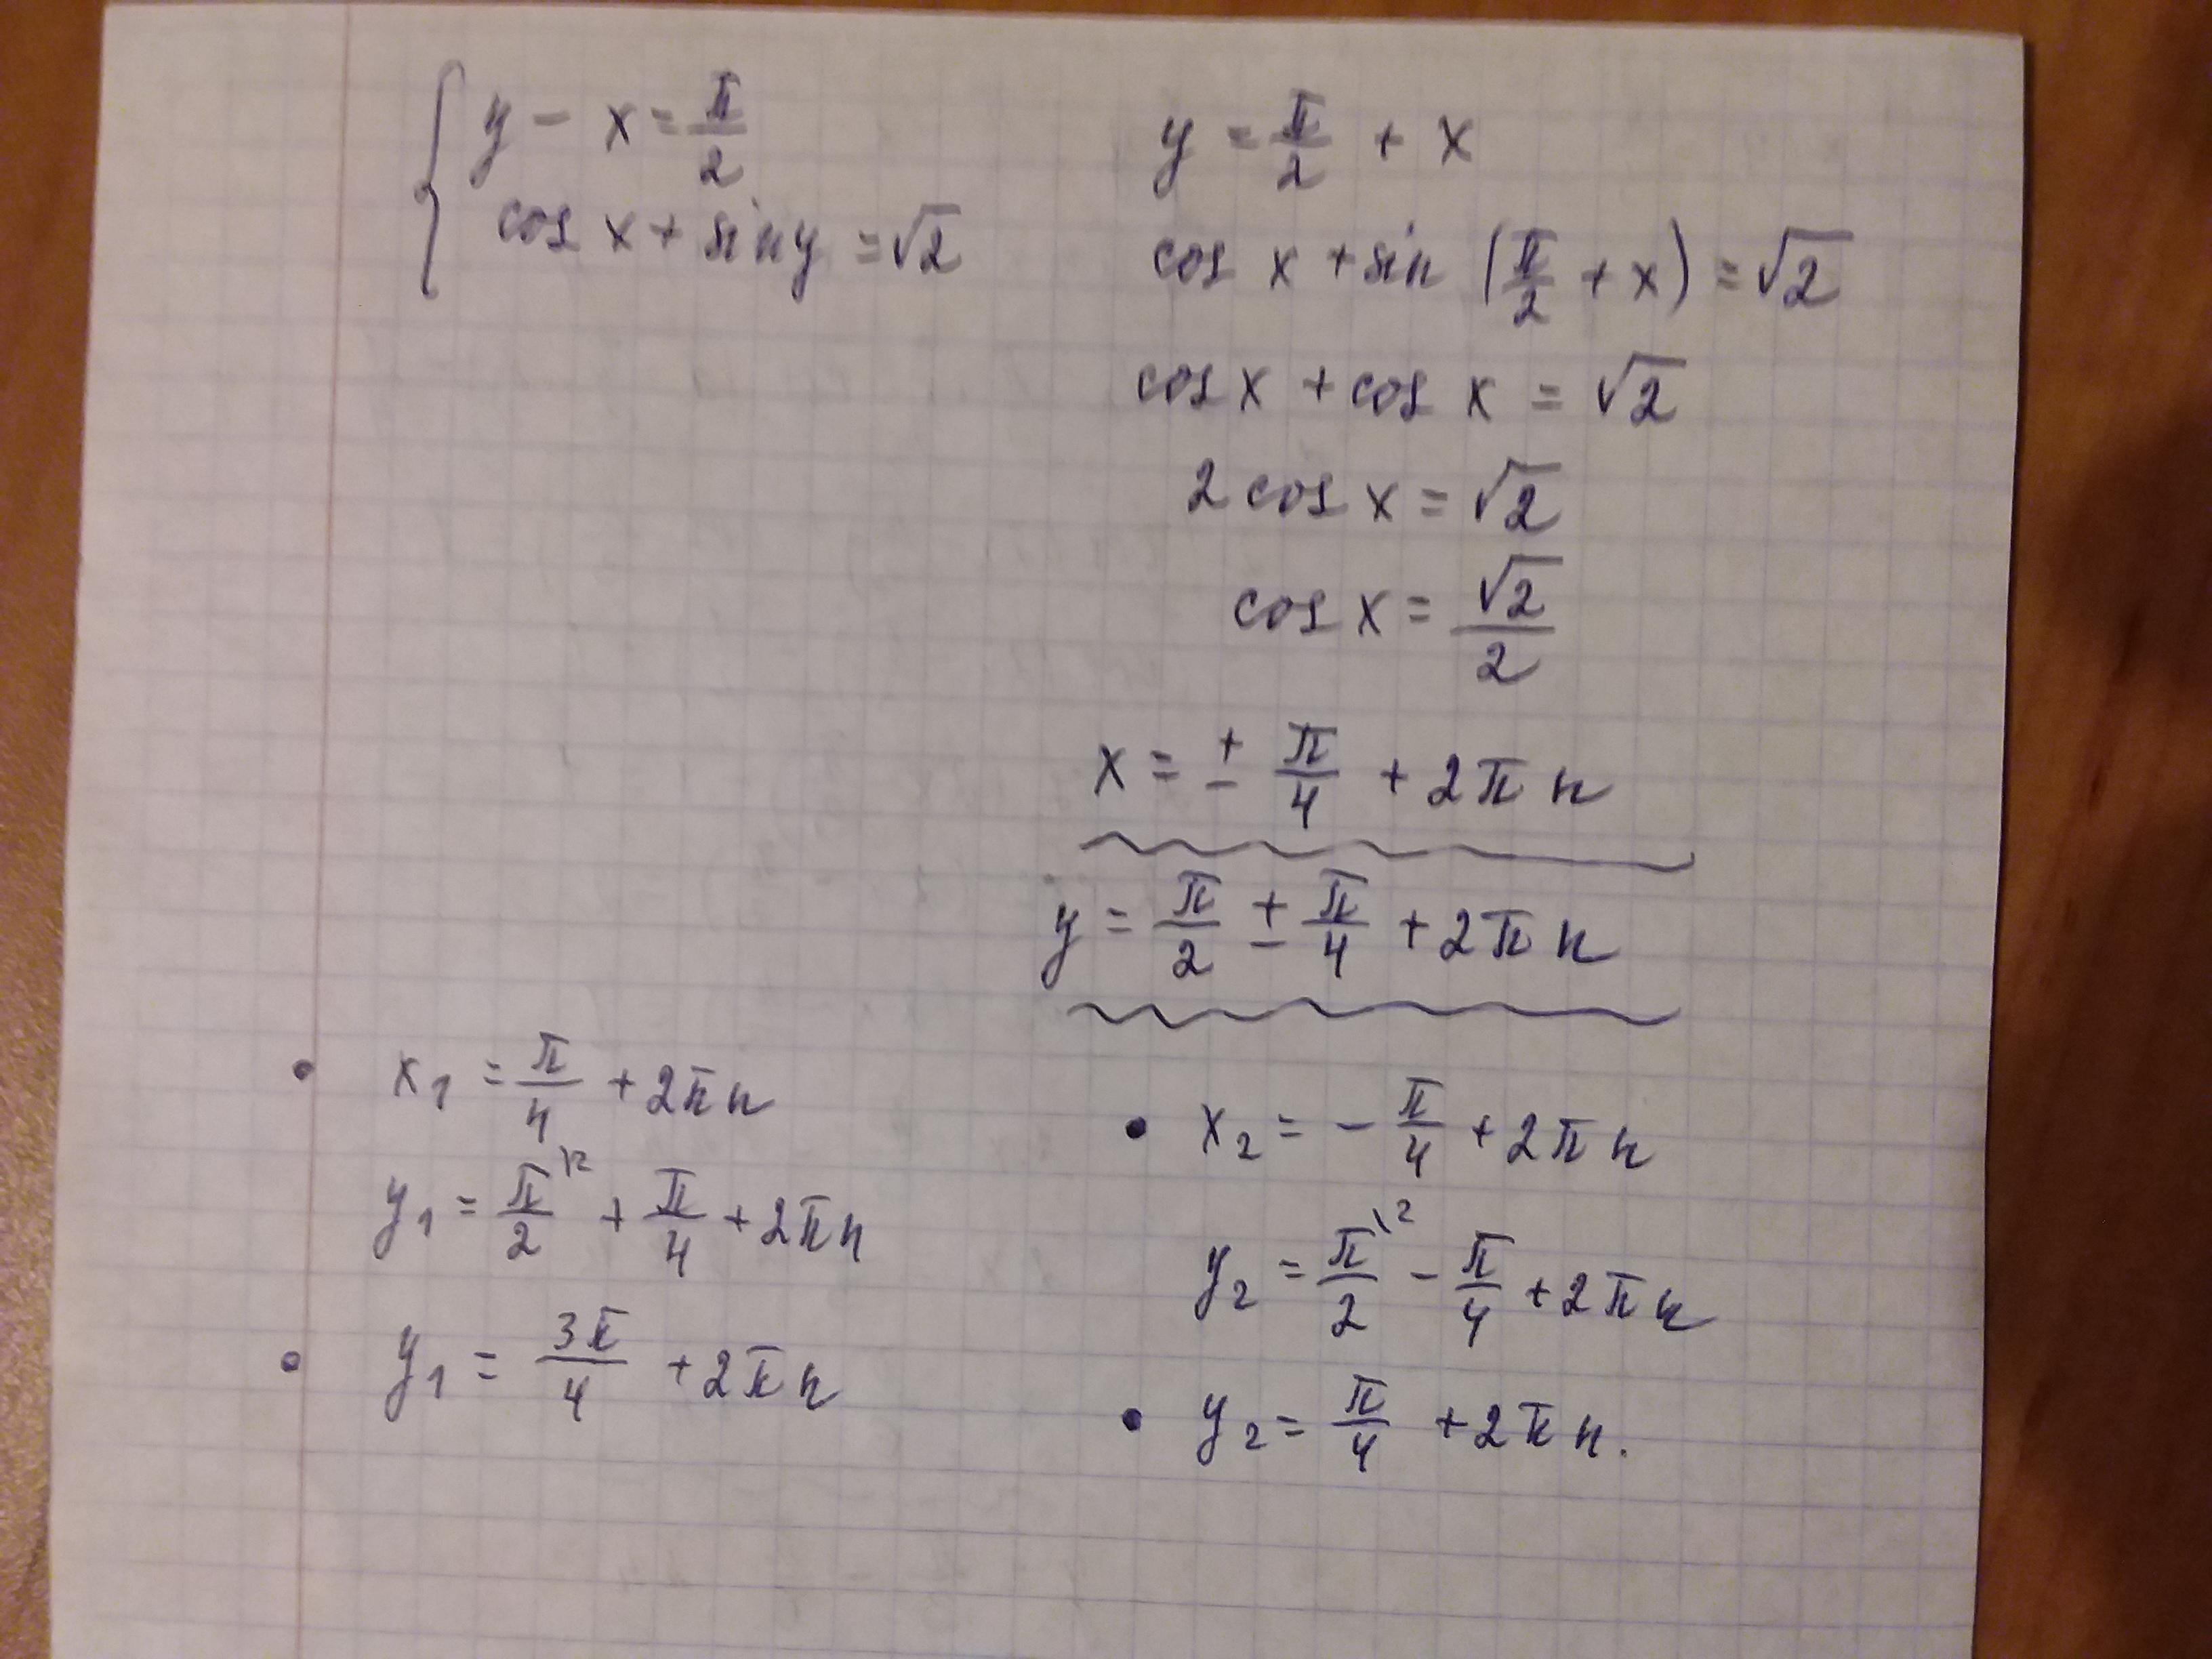 { y - x = π/2
cos x + sin y = √2
y = π/2 + x
cos x + sin (π/2 + x) = √2
cos x + cos x = √2
2 cos x = √2
cos x = √2/2
x = ± π/4 + 2πn
y = π/2 ± π/4 + 2πn
• x₁ = π/4 + 2πn
y₁ = π/2 \2 + π/4 + 2πn
• y₁ = 3π/4 + 2πn
• x₂ = - π/4 + 2πn
y₂ = π/2 \2 - π/4 + 2πn
• y₂ = π/4 + 2πn.